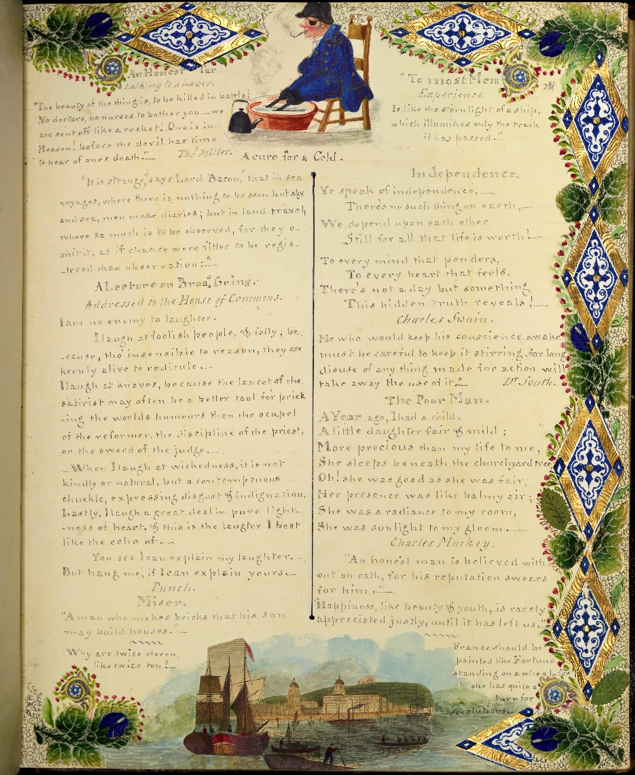 An Honest
talking to a nurse.
"The beauty of the thing is, to be killed in battle!
No doctors, no nurses to bother you — we
are sent off like a rocket! One is in
Heaven! before the devil has time
to hear of one's death."— Thos. Miller.
A cure for a Cold.
"It is strange," says Lord Bacon, "that in sea
voyages, where there is nothing to be seen but sky
and sea, men make diaries; but in land travel,
where so much is to be observed, for they o-
mit it, as if chance were fitter to be regis-
-tered than observation."—
A Lecture on Broad Grins.
Addressed to the House of Commons.
I am no enemy to laughter.
I laugh at foolish people, & folly; be-
-cause, tho' insensible to reason, they are
keenly alive to ridicule.—
I laugh at knaves, because the lancet of the
satirist may often be a better tool for prick
-ing the worlds humours than the scalpel
of the reformer, the discipline of the priest,
or the sword of the judge....
—When I laugh at wickedness, it is not
kindly or natural, but a contemptuous
chuckle, expressing disgust & indignation.
Lastly, I laugh a great deal in pure light-
-ness of heart, & this is the laughter I best
like the echo of.—
You see I can explain my laughter.—
But hang me, if I can explain yours.—
Punch.
Miser.
"A man who makes bricks that his son
may build houses.—
Why are twice eleven,
like twice ten?—
"To most Men
Experience
Is like the stern light of a ship,
which illumines only the track
it has passed."
Independence.
Ye speak of independence,—
There's no such thing on earth,—
We depend upon each other
Still for all that life is worth!—
To every mind that ponders,
To every heart that feels,
There's not a day but something
This hidden truth reveals!—
Charles Swain.
He who would keep his conscience awake
must be careful to keep it stirring, for long
disuse of any thing made for action will
take away the use of it.— Dr. South.
The Poor Man.
A Year ago, I had a child,
A little daughter fair & mild;
More precious than my life to me,
She sleeps beneath the churchyard tree
Oh! she was good as she was fair;
Her presence was like balmy air;
She was a radiance to my room,
She was sunlight to my gloom.—
Charles Mackey.
"An honest man is believed with-
out an oath, for his reputation swears
for him.—
Happiness, like beauty & youth, is rarely
appreciated justly, until it has left us."
France should be
painted like Fortune
standing on a wheel
she has quite a
turn for
revolutions